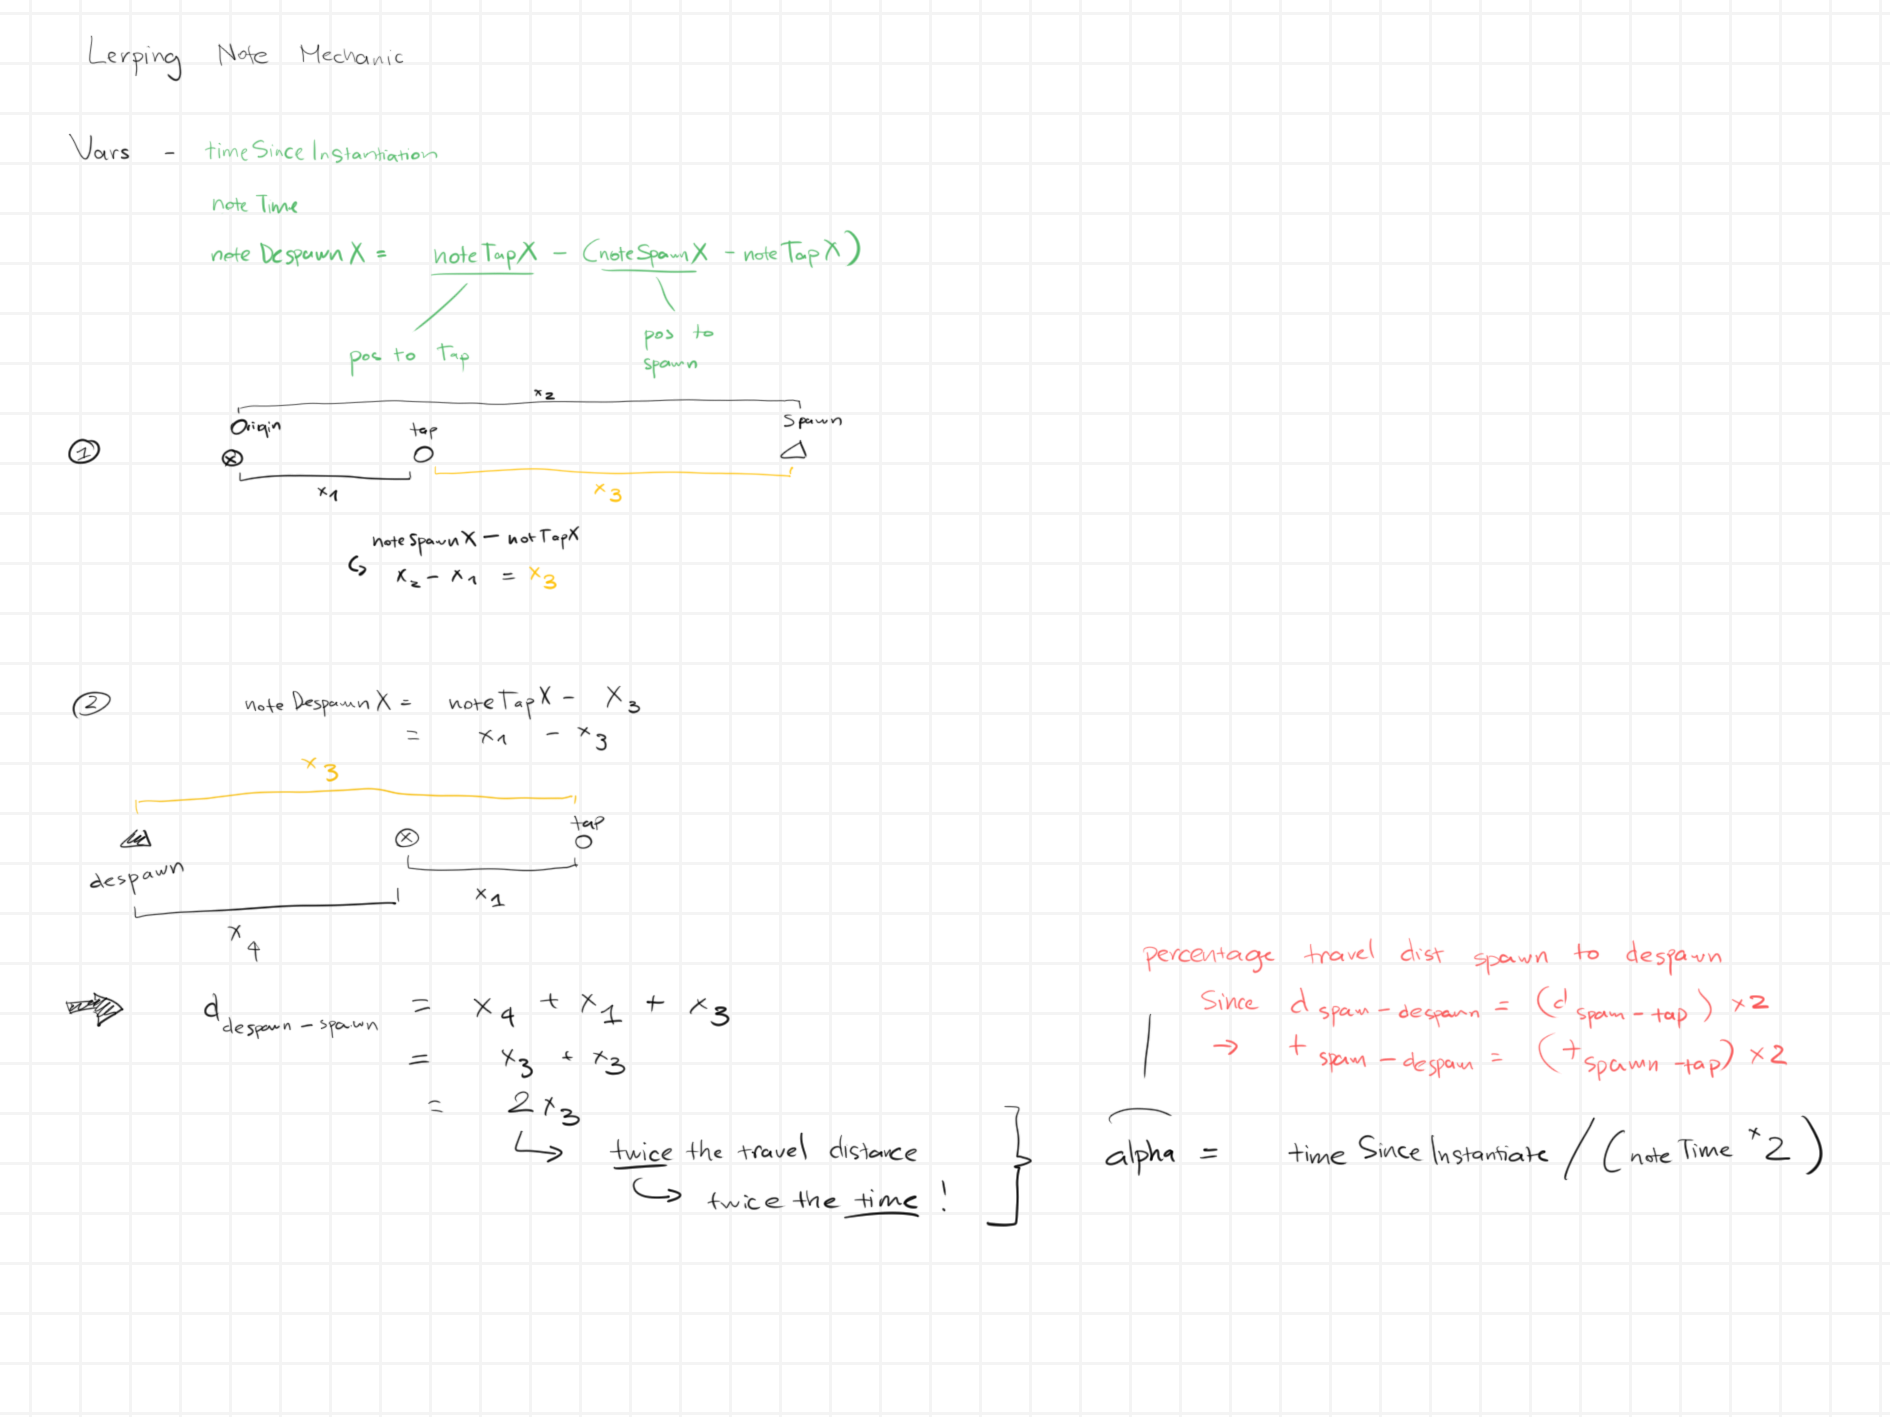 Lerping Note Mechanic
Vars - timeSinceInstantiation
noteTime
noteDespawnX = noteTapX - (noteSpawnX - noteTapX)
pos to Tap
pos to
spawn
x2
Origin tap Spawn
1
x1 x3
noteSpawnX - notTapX
x2 - x1 = x3
2
noteDespawnX = noteTapX - X3
= x1 - x3
x3
tap
despawn
x1
x4
d despawn - spawn = x4 + x1 + x3
= x3 + x3
= 2x3
twice the travel distance
twice the time!
percentage travel dist spawn to despawn
Since d spawn - despawn = (d spawn - tap) x2
→ t spawn - despawn = (t spawn - tap) x2
alpha = timeSinceInstantiate / (noteTime * 2)